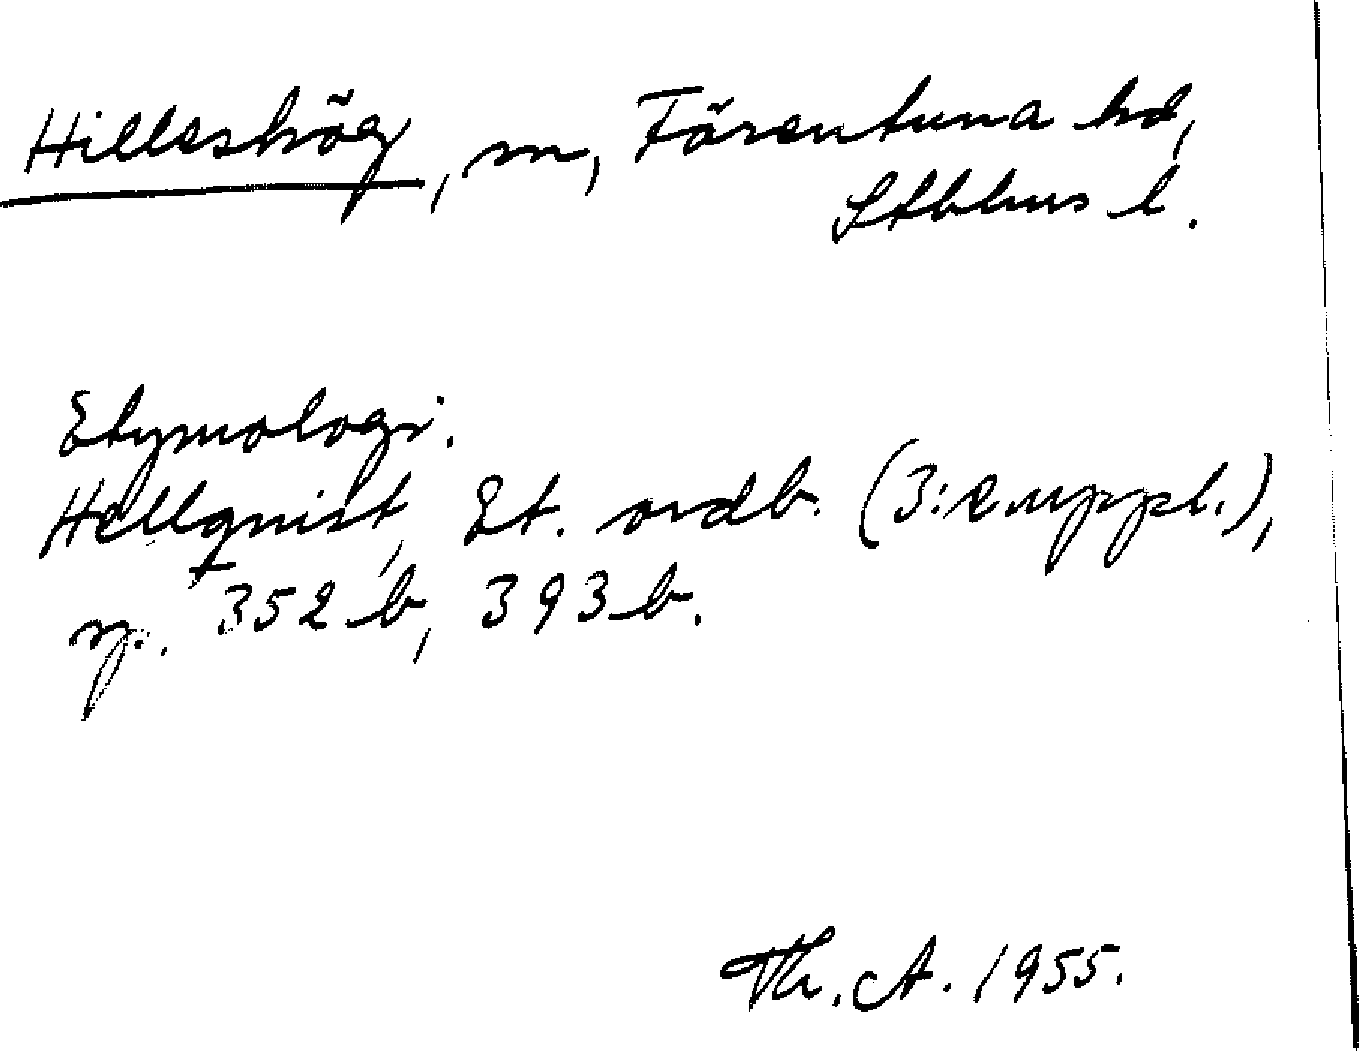 Hilleshög, sn, Färentuna hd,
Stblms l.
Etymologi.
Hellquist, Et. ordb. (3:e uppl.),
sp. 352 b, 393 b.
Th. A. 1955.